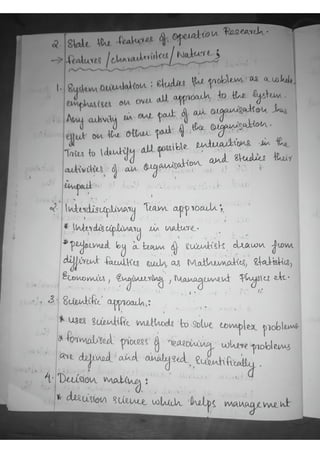 2. State the features of Operation Research.
→ features/characteristics/Nature;
1. System Orientation : Studies the problem as a whole,
emphasises on over all approach to the System.
Any activity in one part of an organisation has
effect on the other part of the organisation.
Tries to Identify all possible interactions in the
activities of an organisation and studies their
impact
2. Interdisciplinary Team approach ;
* Interdisciplinary in nature.
* performed by a team of scientists drawn from
different faculties such as Mathematics, Statistics,
Economics, Engineering, Management Physics etc.
3. Scientific approach.:
* uses scientific methods to solve complex problems
* formalised process of reasoning where problems
are defined and analysed scientifically.
4. Decision making :
* descision science which helps management